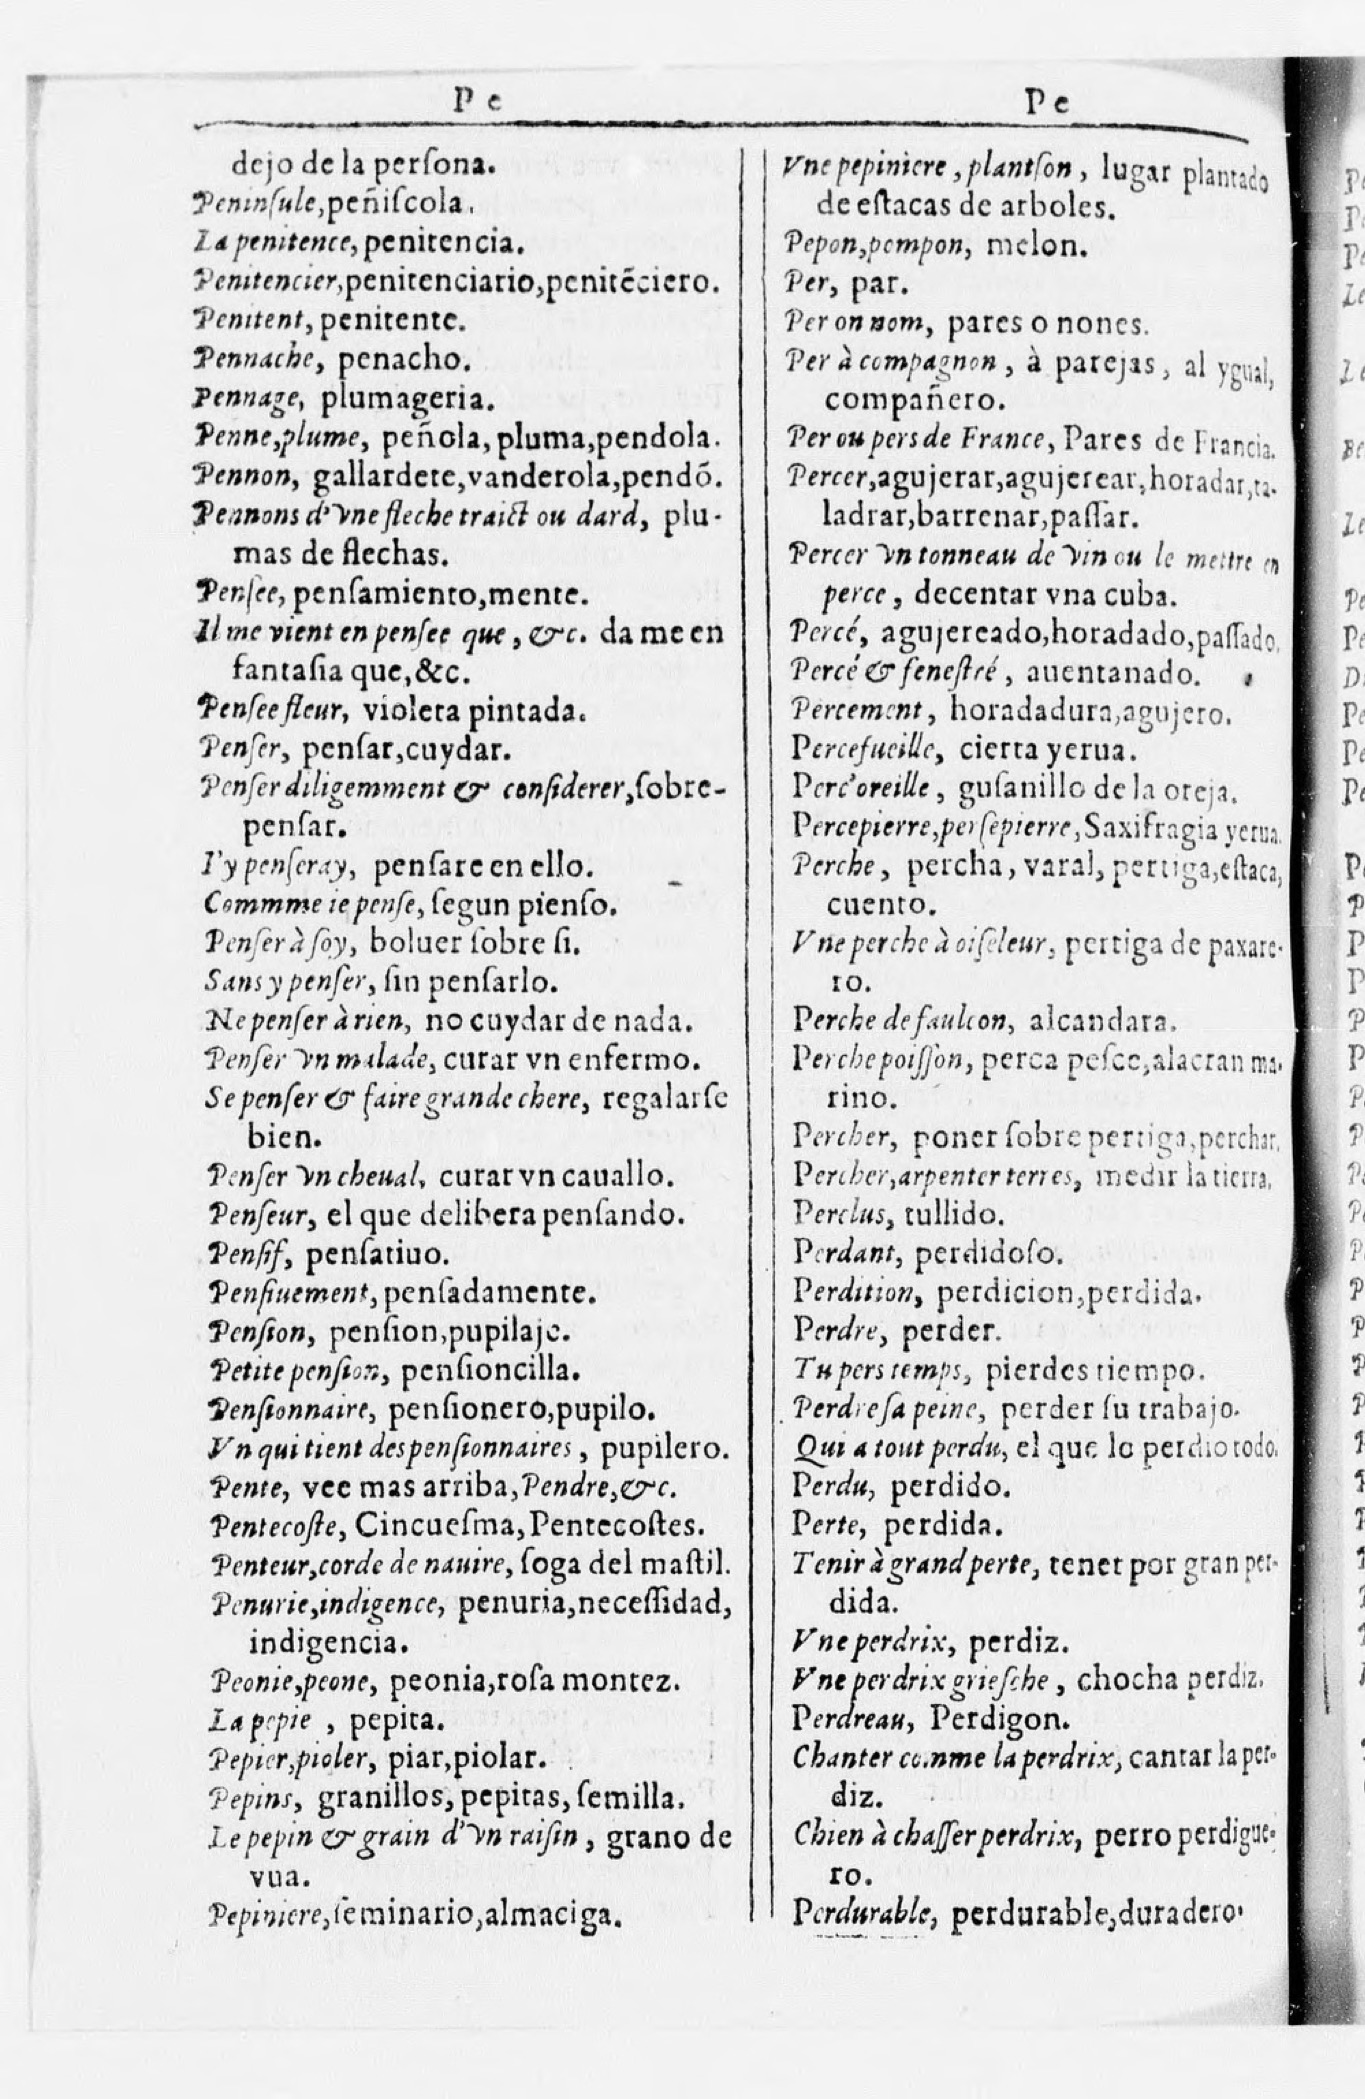 Pe
dejo de la perſona.
Peninſule,peñiſcola.
La penitence, penitencia.
Penitencier,penitenciario,penitẽciero.
Penitent, penitente.
Pennache, penacho.
Pennage, plumageria.
Penne,plume, peñola, pluma,pendola.
Pennon, gallardete,vanderola,pendõ.
Pennons d'vne fleche traict ou dard, plu-
mas de flechas.
Penſee, penſamiento,mente.
Il me vient en penſee que, &c. da me en
fantaſia que,&c.
Penſee fleur, violeta pintada.
Penſer, penſar,cuydar.
Penſer diligemment & conſiderer,ſobre-
penſar.
I'y penſeray, penſare en ello.
Commme ie penſe, ſegun pienſo.
Penſer à ſoy, boluer ſobre ſi.
Sans y penſer, ſin penſarlo.
Ne penſer à rien, no cuydar de nada.
Penſer vn malade, curar vn enfermo.
Se penſer & faire grande chere, regalarſe
bien.
Penſer vn cheual, curar vn cauallo.
Penſeur, el que delibera penſando.
Penſif, penſatiuo.
Penſiuement, penſadamente.
Penſion, penſion,pupilaje.
Petite penſion, penſioncilla.
Penſionnaire, penſionero,pupilo.
Vn qui tient des penſionnaires, pupilero.
Pente, vee mas arriba,Pendre,&c.
Pentecoſte, Cincueſma, Pentecoſtes.
Penteur,corde de nauire, ſoga del maſtil.
Penurie,indigence, penuria,neceſſidad,
indigencia.
Peonie,peone, peonia,roſa montez.
La pepie, pepita.
Pepier,pioler, piar,piolar.
Pepins, granillos, pepitas, ſemilla.
Le pepin & grain d'vn raiſin, grano de
vua.
Pepiniere,ſeminario,almaciga.
Pe
Vne pepiniere, plantſon, lugar plantado
de eſtacas de arboles.
Pepon,pompon, melon.
Per, par.
Per on nom, pares o nones.
Per à compagnon, à parejas, al ygual,
compañero.
Per ou pers de France, Pares de Francia.
Percer,agujerar,agujerear,horadar,ta-
ladrar,barrenar,paſſar.
Percer vn tonneau de vin ou le mettre en
perce, decentar vna cuba.
Percé, agujereado,horadado,paſſado.
Percé & feneſtré, auentanado.
Percement, horadadura,agujero.
Percefueille, cierta yerua.
Perc'oreille, guſanillo de la oreja.
Percepierre,perſepierre, Saxifragia yerua.
Perche, percha, varal, pertiga,eſtaca,
cuento.
Vne perche à oiſeleur, pertiga de paxare-
ro.
Perche de faulcon, alcandara.
Perche poiſſon, perca peſce,alacran ma-
rino.
Percher, poner ſobre pertiga,perchar.
Percher,arpenter terres, medir la tierra.
Perclus, tullido.
Perdant, perdidoſo.
Perdition, perdicion,perdida.
Perdre, perder.
Tu pers temps, pierdes tiempo.
Perdre ſa peine, perder ſu trabajo.
Qui a tout perdu, el que lo perdio todo.
Perdu, perdido.
Perte, perdida.
Tenir à grand perte, tener por gran per-
dida.
Vne perdrix, perdiz.
Vne perdrix grieſche, chocha perdiz.
Perdreau, Perdigon.
Chanter comme la perdrix, cantar la per-
diz.
Chien à chaſſer perdrix, perro perdigue-
ro.
Perdurable, perdurable,duradero.